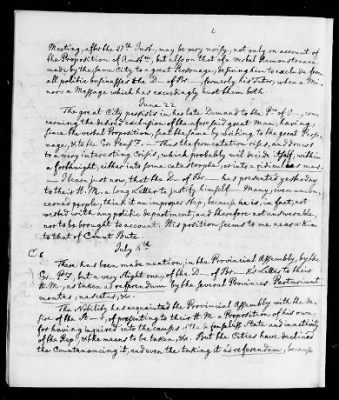 Meeting, after the 27th Inst, may be very noisy, not only on account of
the Proposition of Amstm. but also on that of a verbal Remonstrance
made by the same City to a great Personage, desiring him to exclude from
all politic businesses the D— of Br—, formerly his Tutor, when a Mi-
nor: a Message which has exceedingly hurt them both.
June 22
The great City persists in her late Demand to the Pe. of O—, con-
cerning the desired exclusion of the aforesaid great Man, having,
since the verbal Proposition, sent the same by writing to the great Perso-
nage, & to the Gr. Pensy. — Thus the fermentation rises, and draws
to a very interesting Crisis, which probably will decide itself, within
a fortnight, either into some catastrophe, or into a ridiculus mus.
— I learn just now, that the D— of Br— has presented yesterday
to their H. M. a long Letter to justify himself. Many, even unin-
terested people, think it an improper step, because he is, in fact, not
vested with any politic department, and therefore not answerable,
nor to be brought to account. His position seems to me near akin
to that of Count Bute
July 4th
There has been made mention, in the Provincial Assembly, by the
Gr. P., but a very slight one, of the D— of Br—k's Letter to their
H. M., as taken ad referendum by the several Provinces. Parturiunt
montes, nascetur, &c.
The Nobility has acquainted the Provincial Assembly with the de-
sire of the St—r, of presenting to their H. M. a Proposition of his own,
for having inquired into the causes of the defenseless State and inactivity
of the Rep., & the means to be taken, &c. But the Cities have declined
the Countenancing it, and even the taking it ad referendum, because